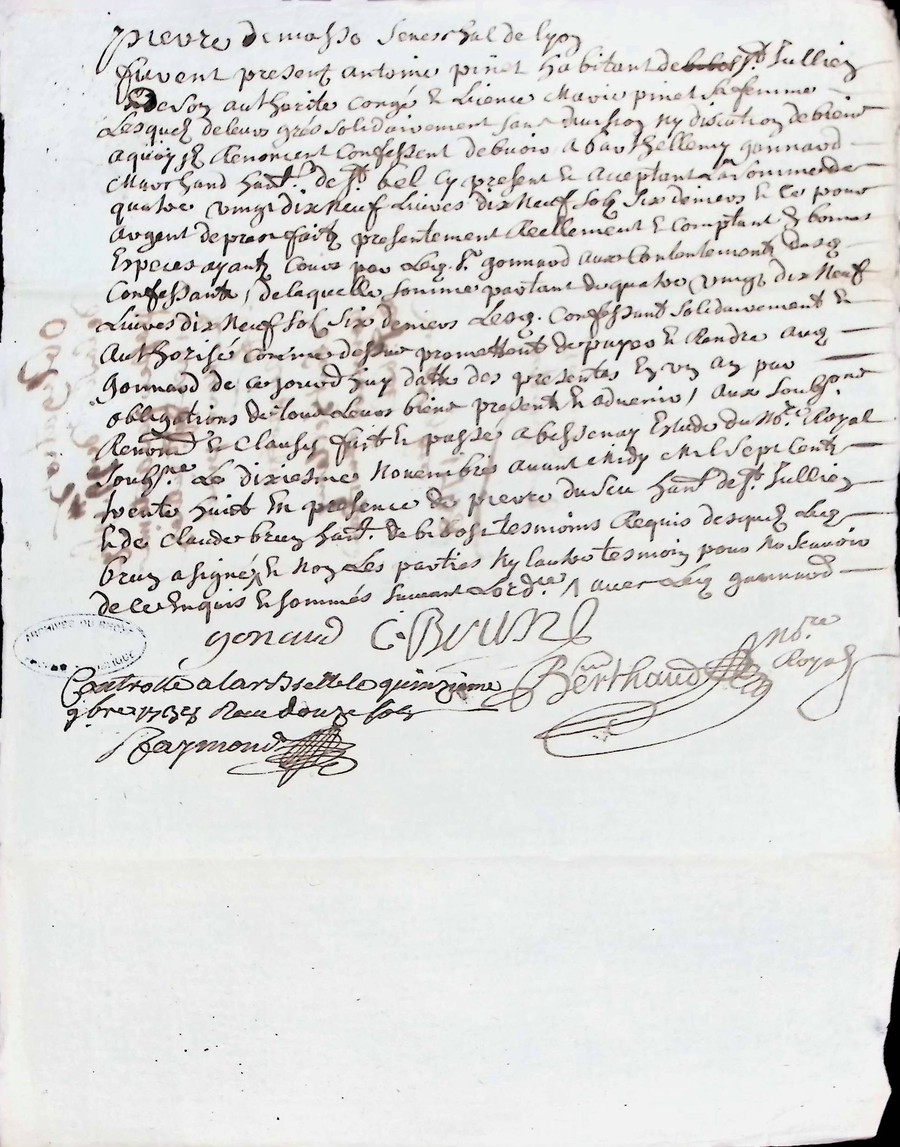 pierre demasso seneschal de Lyon
furent present antoine pinet habitant de St Jullien
& de son authorité congé & licence Marie pinet sa femme
Lesquelz de leurs grés solidairement sans division ny discution de biens
a quoy ilz Renoncent Confessent debvoir a barthellemy gonnard
Marchand hant. de St bel cy present & acceptant La somme de
quatre vingt dix Neuf Livres dix Neuf solz six deniers & ce pour
argent de prest fait presentement Reellement & comptant & bonnes
Especes ayantz Cours par Led. Sr. gonnard aux Contentement desd.
Confessants, de laquelle somme partant de quatre vingt dix Neuf
Livres dix Neuf solz six deniers Lesd. Confessant solidairement &
authorisé comme dessus promettent de payer & Rendre aud.
gonnard de ce jourd'huy datte des presentes En un an par
obligations de tous Leurs biens present & advenir, aux
Renon. & Clauses fait & passé a bessenay Estude du No.re Royal
soubs.ne Le dixiesme Novembres avant Midy Mil sept cent
trente huit En presence de pierre duseu hant. de St. Jullien
& de Claude brun hant. de bibost tesmoins Requis desquelz Led.
brun a signé, & Non Les parties Ny lautre tesmoin pour Ne scavoir
de ce Enquis & sommés suivant Lord.re / avec Led. gonnard
gonard C. Brun
Berthaud No.re Royal
ARCHIVES DU RHONE
Controllé a larbreslle le quinzieme
9bre 1738 Receu douze solz
Raymond